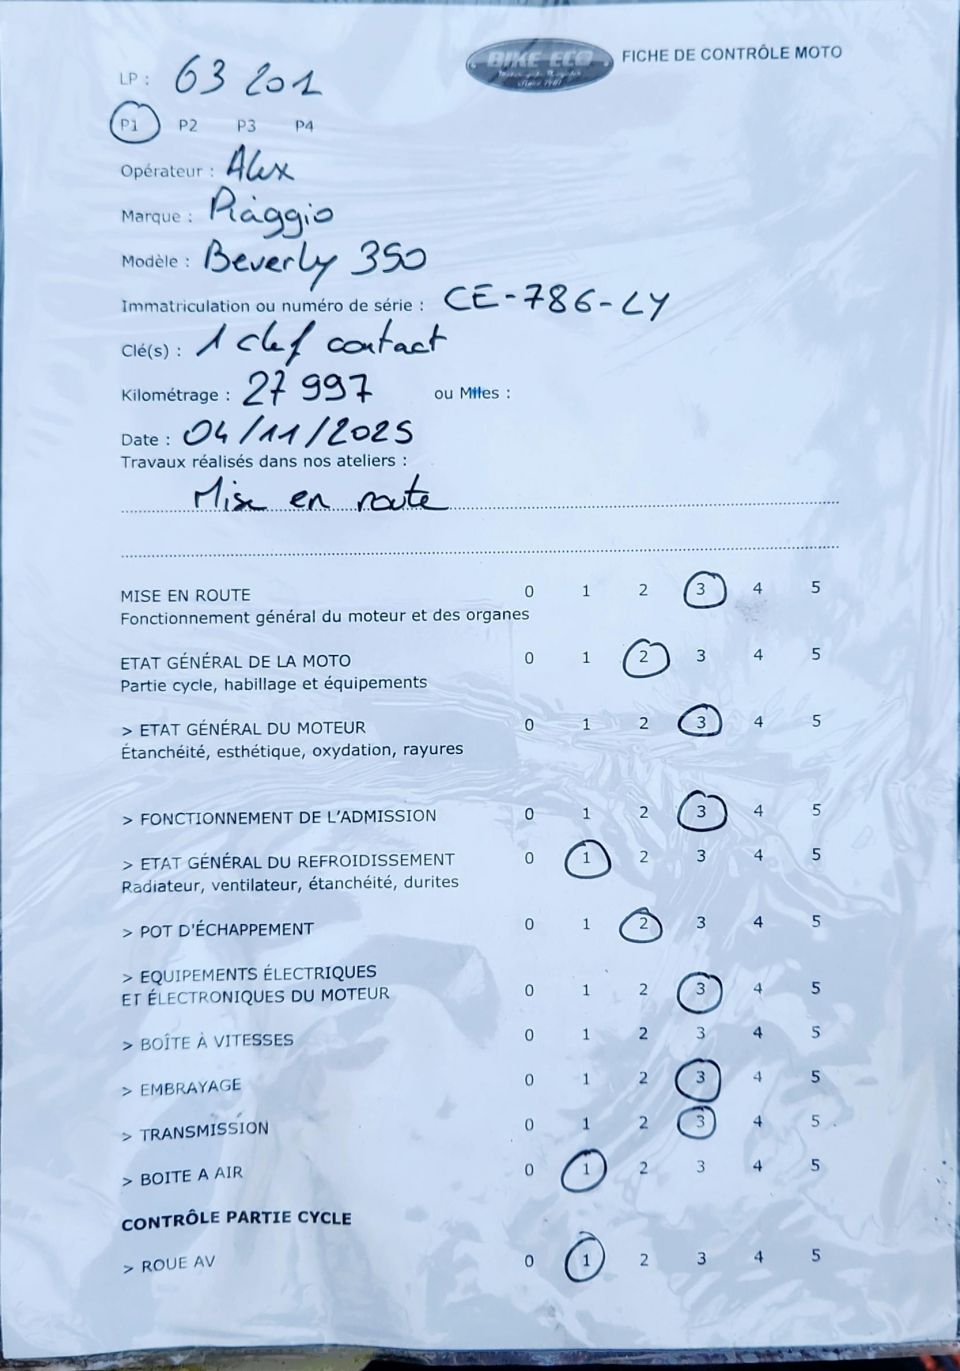 BIKE ECO
FICHE DE CONTRÔLE MOTO
LP : 63 201
P1 P2 P3 P4
Opérateur : Alex
Marque : Piaggio
Modèle : Beverly 350
Immatriculation ou numéro de série : CE-786-LY
Clé(s) : 1 clef contact
Kilométrage : 27 997 ou Miles :
Date : 04/11/2025
Travaux réalisés dans nos ateliers :
Mise en route
MISE EN ROUTE 0 1 2 3 4 5
Fonctionnement général du moteur et des organes
ETAT GÉNÉRAL DE LA MOTO 0 1 2 3 4 5
Partie cycle, habillage et équipements
> ETAT GÉNÉRAL DU MOTEUR 0 1 2 3 4 5
Étanchéité, esthétique, oxydation, rayures
> FONCTIONNEMENT DE L'ADMISSION 0 1 2 3 4 5
> ETAT GÉNÉRAL DU REFROIDISSEMENT 0 1 2 3 4 5
Radiateur, ventilateur, étanchéité, durites
> POT D'ÉCHAPPEMENT 0 1 2 3 4 5
> EQUIPEMENTS ÉLECTRIQUES
ET ÉLECTRONIQUES DU MOTEUR 0 1 2 3 4 5
> BOÎTE À VITESSES 0 1 2 3 4 5
> EMBRAYAGE 0 1 2 3 4 5
> TRANSMISSION 0 1 2 3 4 5
> BOITE A AIR 0 1 2 3 4 5
CONTRÔLE PARTIE CYCLE
> ROUE AV 0 1 2 3 4 5